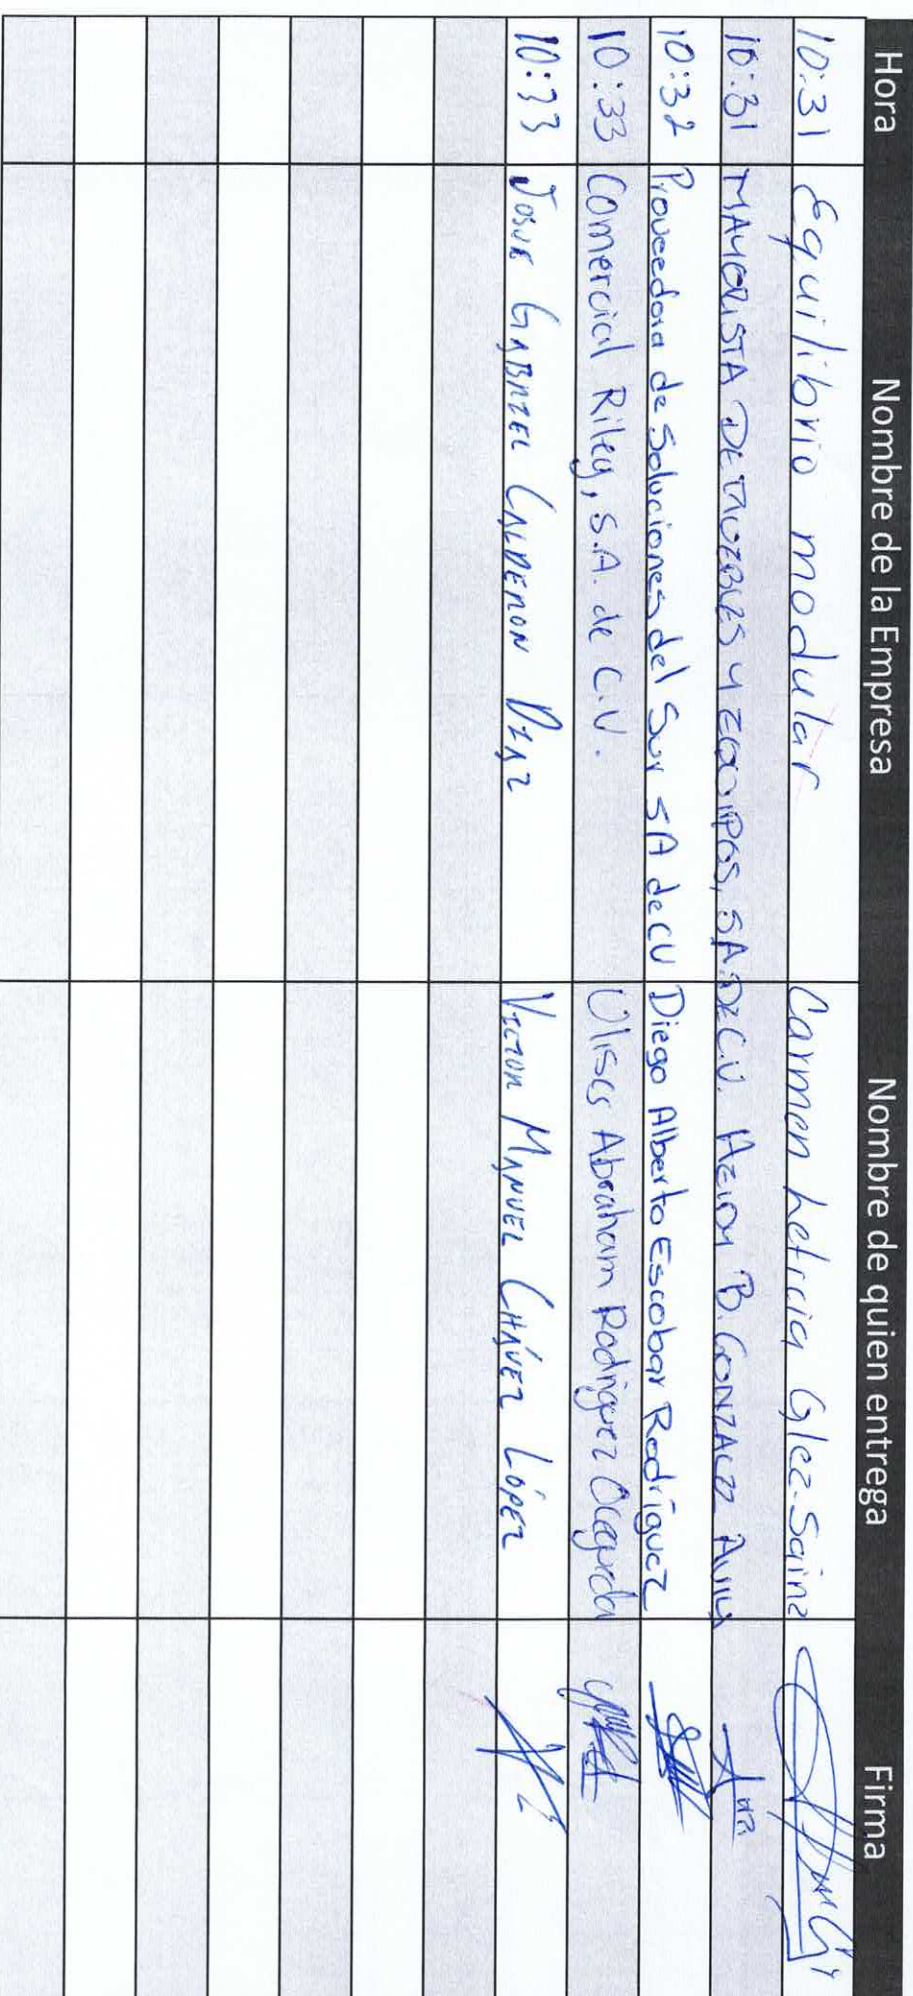 Hora Nombre de la Empresa Nombre de quien entrega Firma
10:31 Equilibrio modular Carmen Leticia Glez. Sainz
10:31 MAYORISTA DE MUEBLES Y EQUIPOS, SA. DE C.V. HEIDY B. GONZALEZ
10:32 Proveedora de Soluciones del Sur SA de CV Diego Alberto Escobar Rodríguez
10:33 Comercial Riley, S.A. de C.V. Ulises Abraham Rodriguez Ocegueda
10:33 JOSUE GABRIEL CALDERON DIAZ VICTOR MANUEL CHÁVEZ LÓPEZ